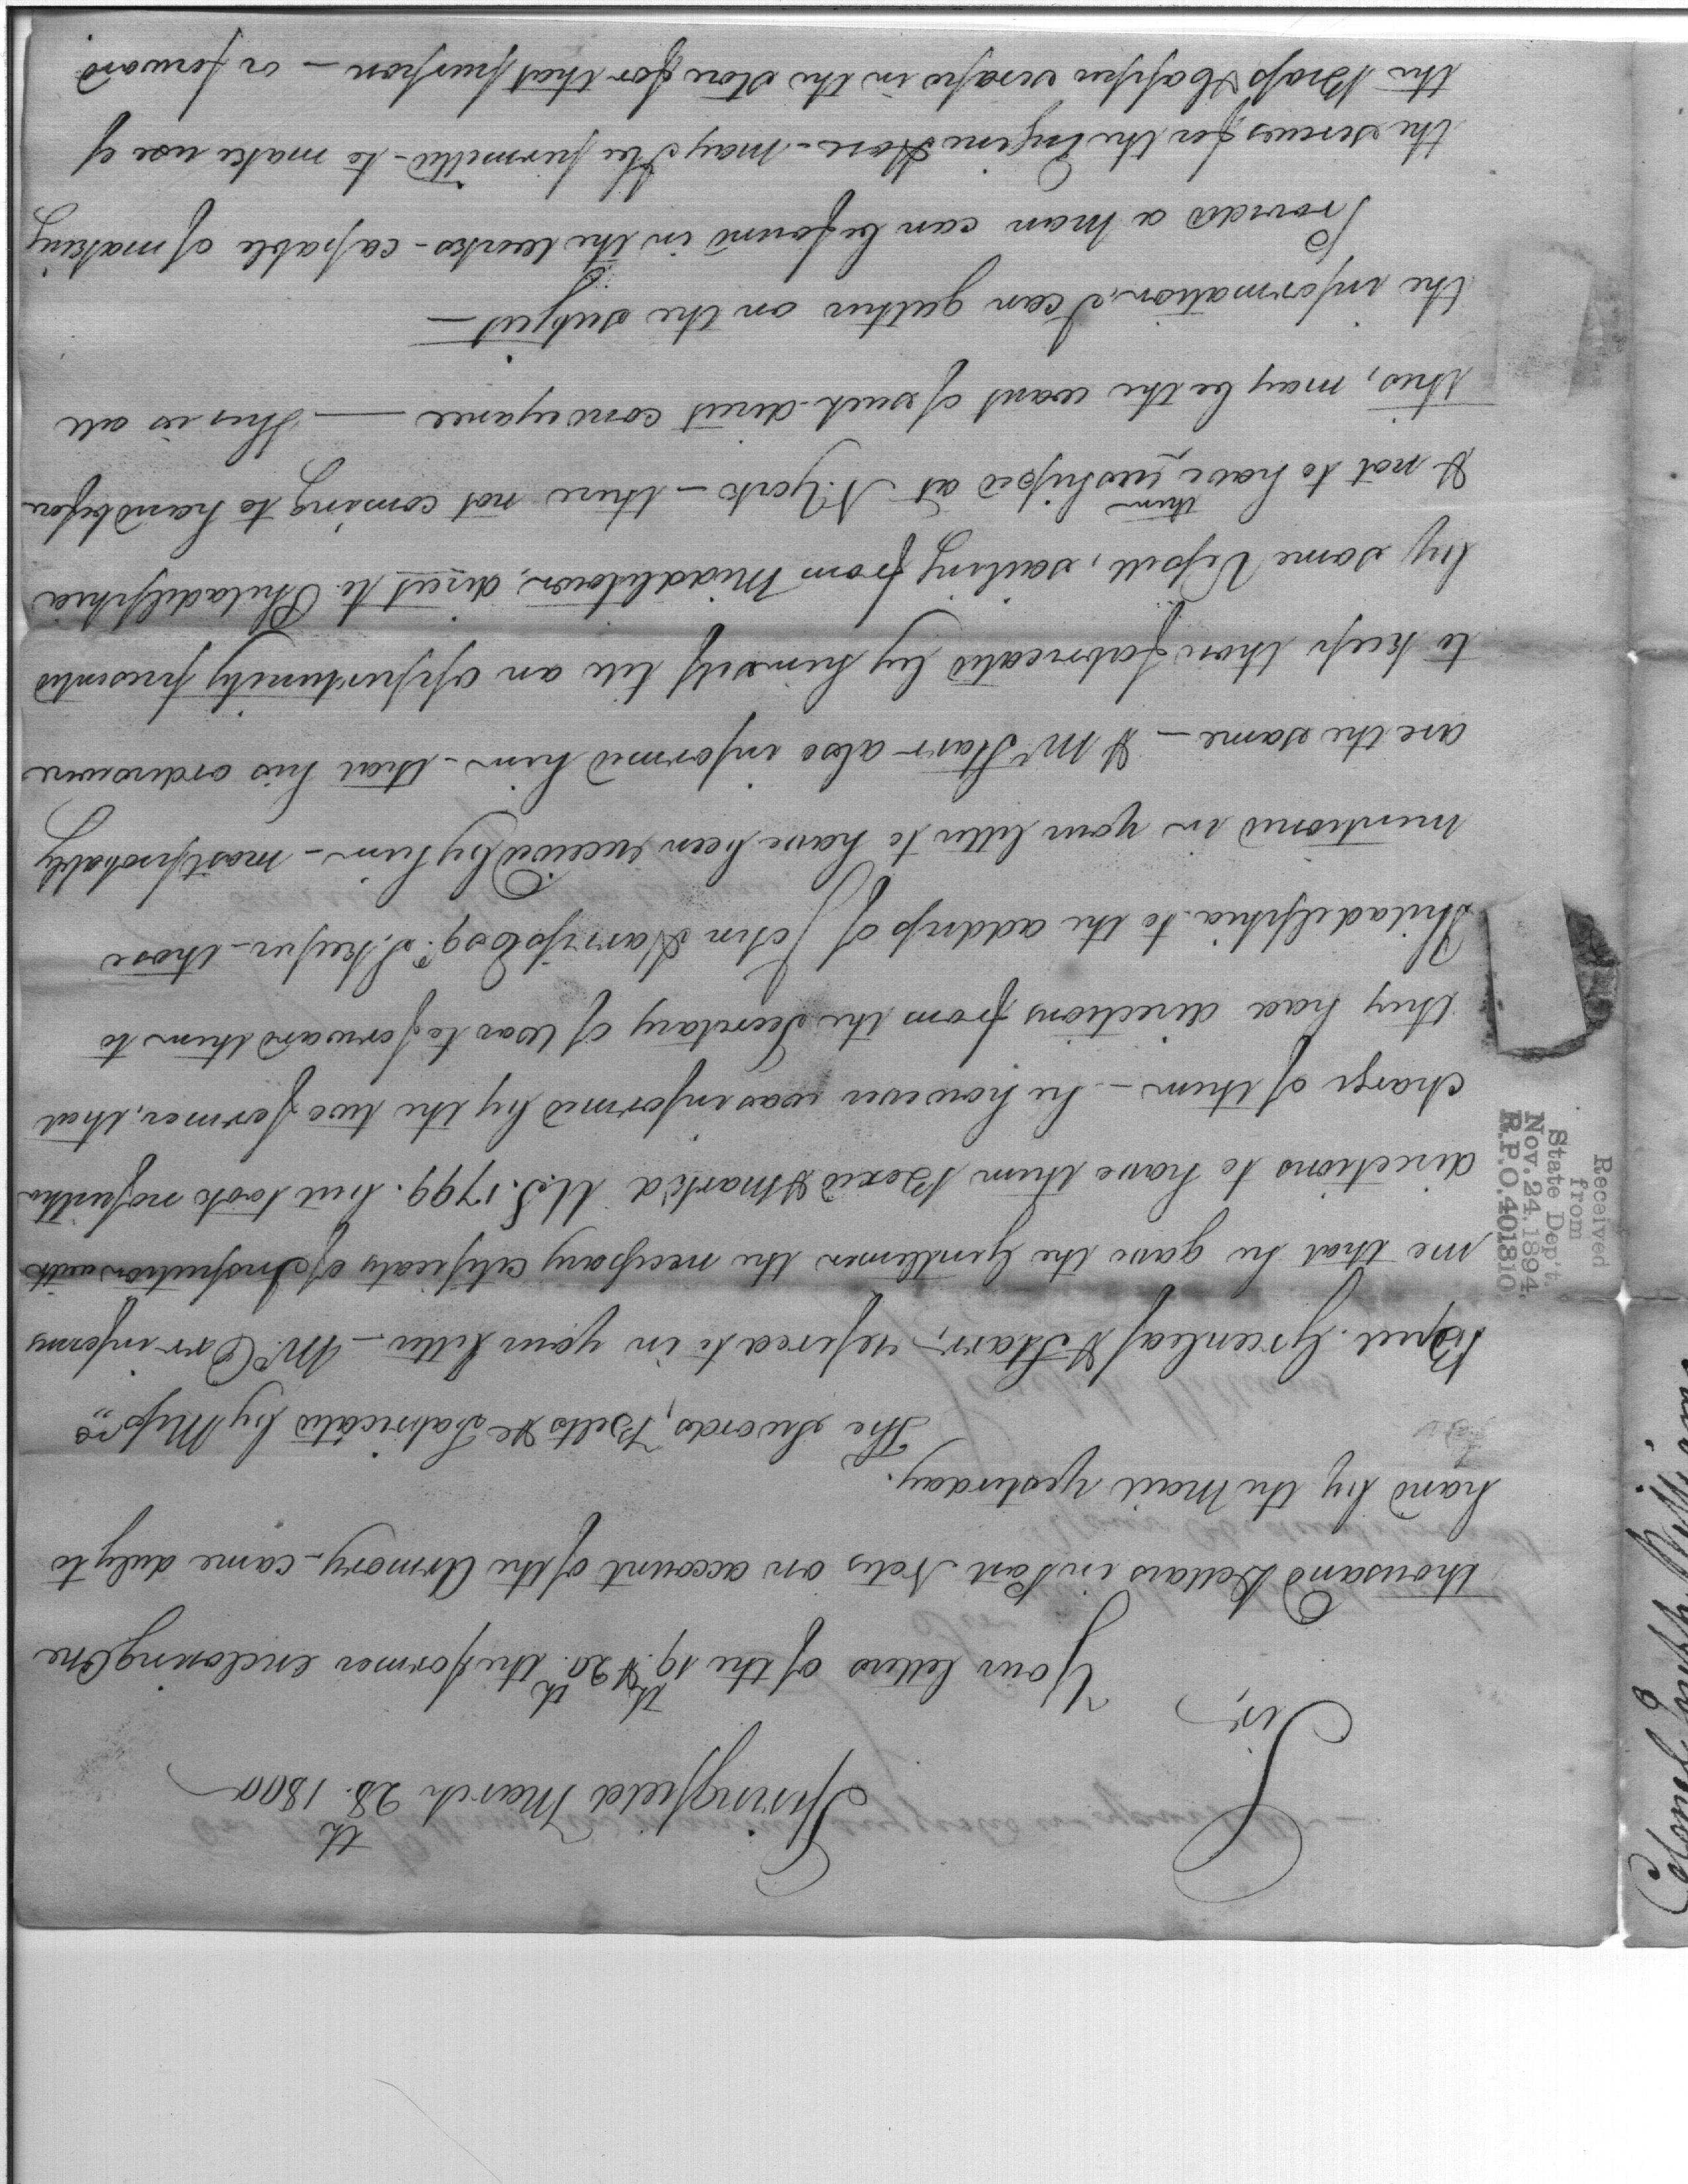 Springfield March 28th. 1800
Sir,
Your letters of the 19th & 20th. the former enclosing One
thousand Dollars in Post Notes on account of the Armory - came duly to
hand by the Mail Yesterday.
The Swords, Belts &c fabricated by Messrs
Buel. Greenleaf & Starr, refered to in your letter - Mr. Orr informs
me that he gave the Gentlemen the necessary certificats of Inspection with
directions to have them Boxed & mark'd U.S. 1799. but took no further
charge of them - he however was informed by the two former, that
they had directions from the Secretary of War to forward them to
Philadelphia to the address of John Harris Esqr. S. Keeper - those
mentioned in your letter to have been received by him - most probably
are the same - & Mr Starr also informed him - that his orders were
to keep those fabricated by himself till an oppertunity presented
by some Vessell, sailing from Middletown, direct to Philadelphia
& not to have them reshiped at N. York - there not coming to hand before
this, may be the want of such direct conveyance — This is all
the information I can gather on the subject —
Provided a man can be found in the works - capable of making
the screws for the Engine Hose - may I be permitted - to make use of
the Brass & Copper scraps in the Store for that purpose - or forward
Received
from
State Dep't.
Nov. 24. 1894.
R.P.O. 401810
Colonel Joseph Williams